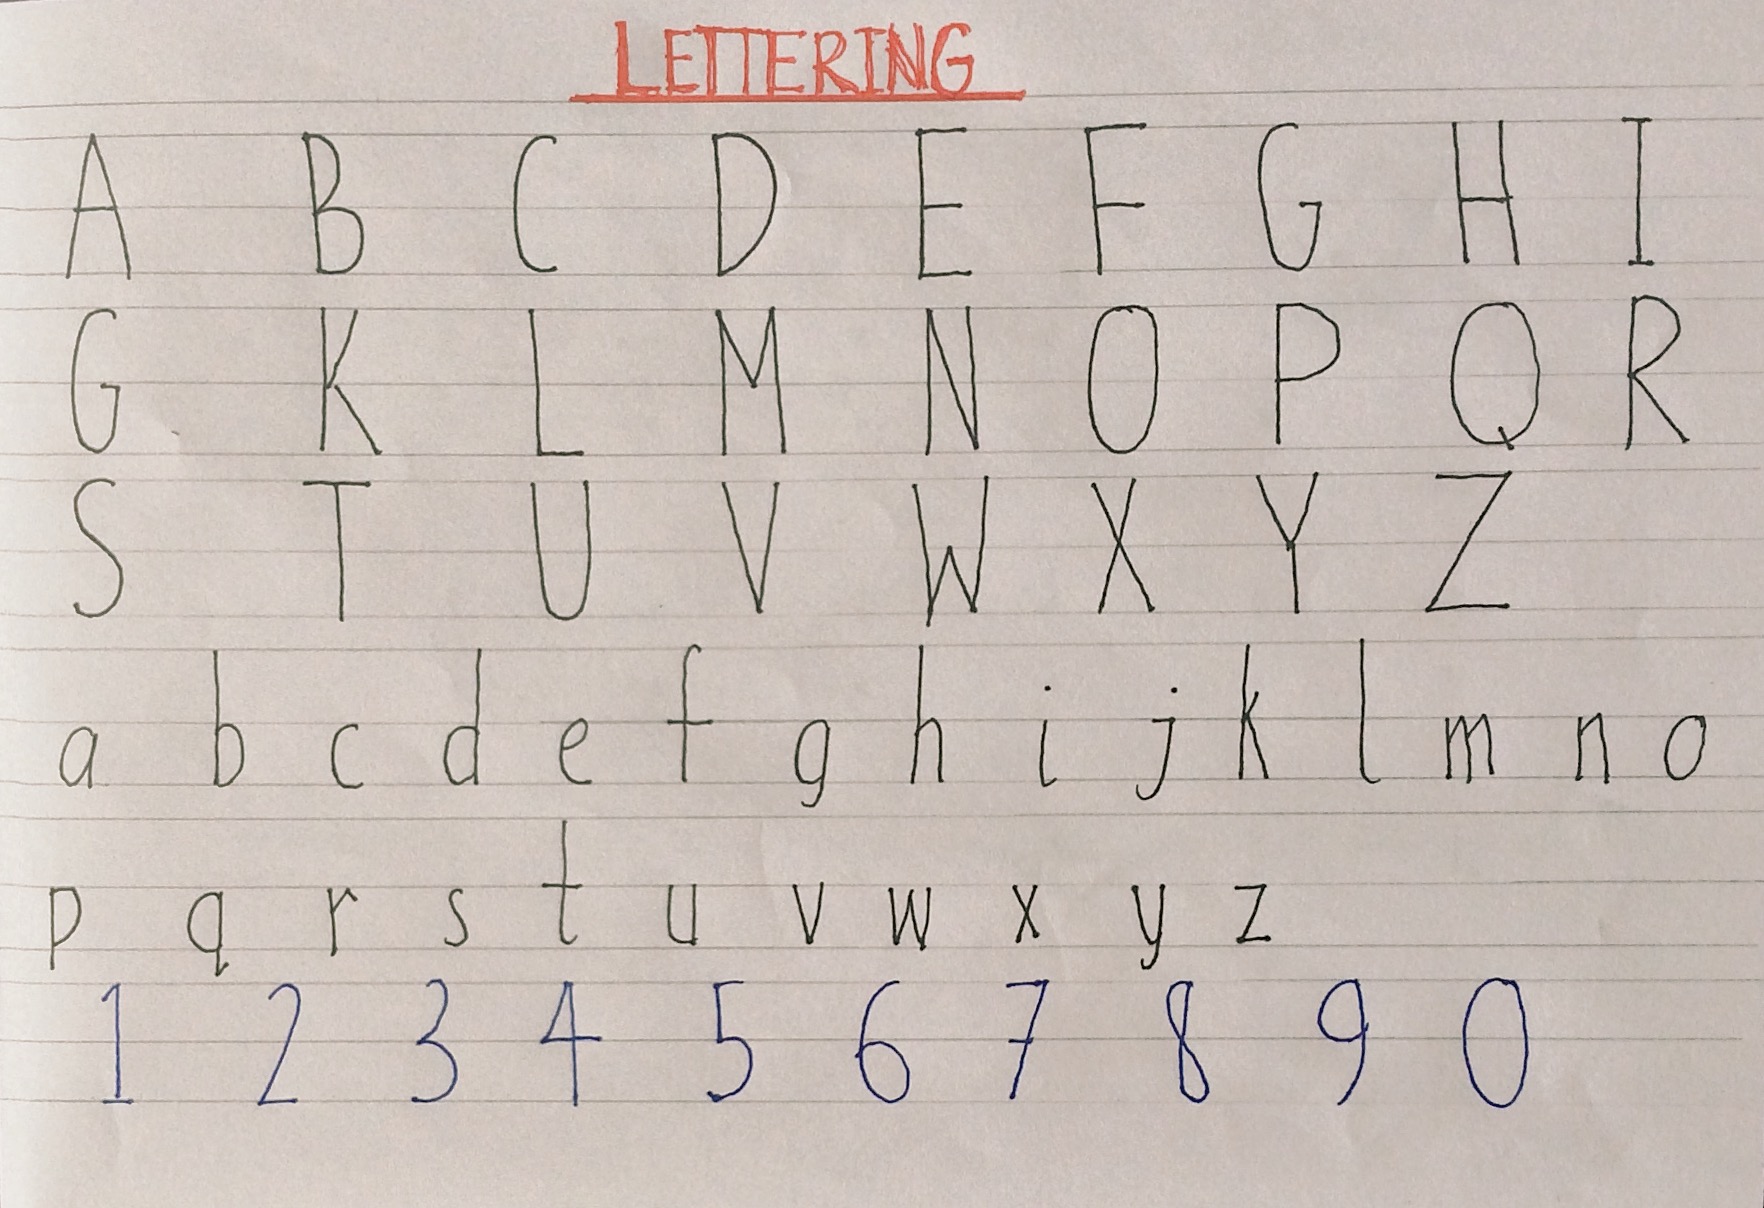 LETTERING
A B C D E F G H I
G K L M N O P Q R
S T U V W X Y Z
a b c d e f g h i j k l m n o
p q r s t u v w x y z
1 2 3 4 5 6 7 8 9 0